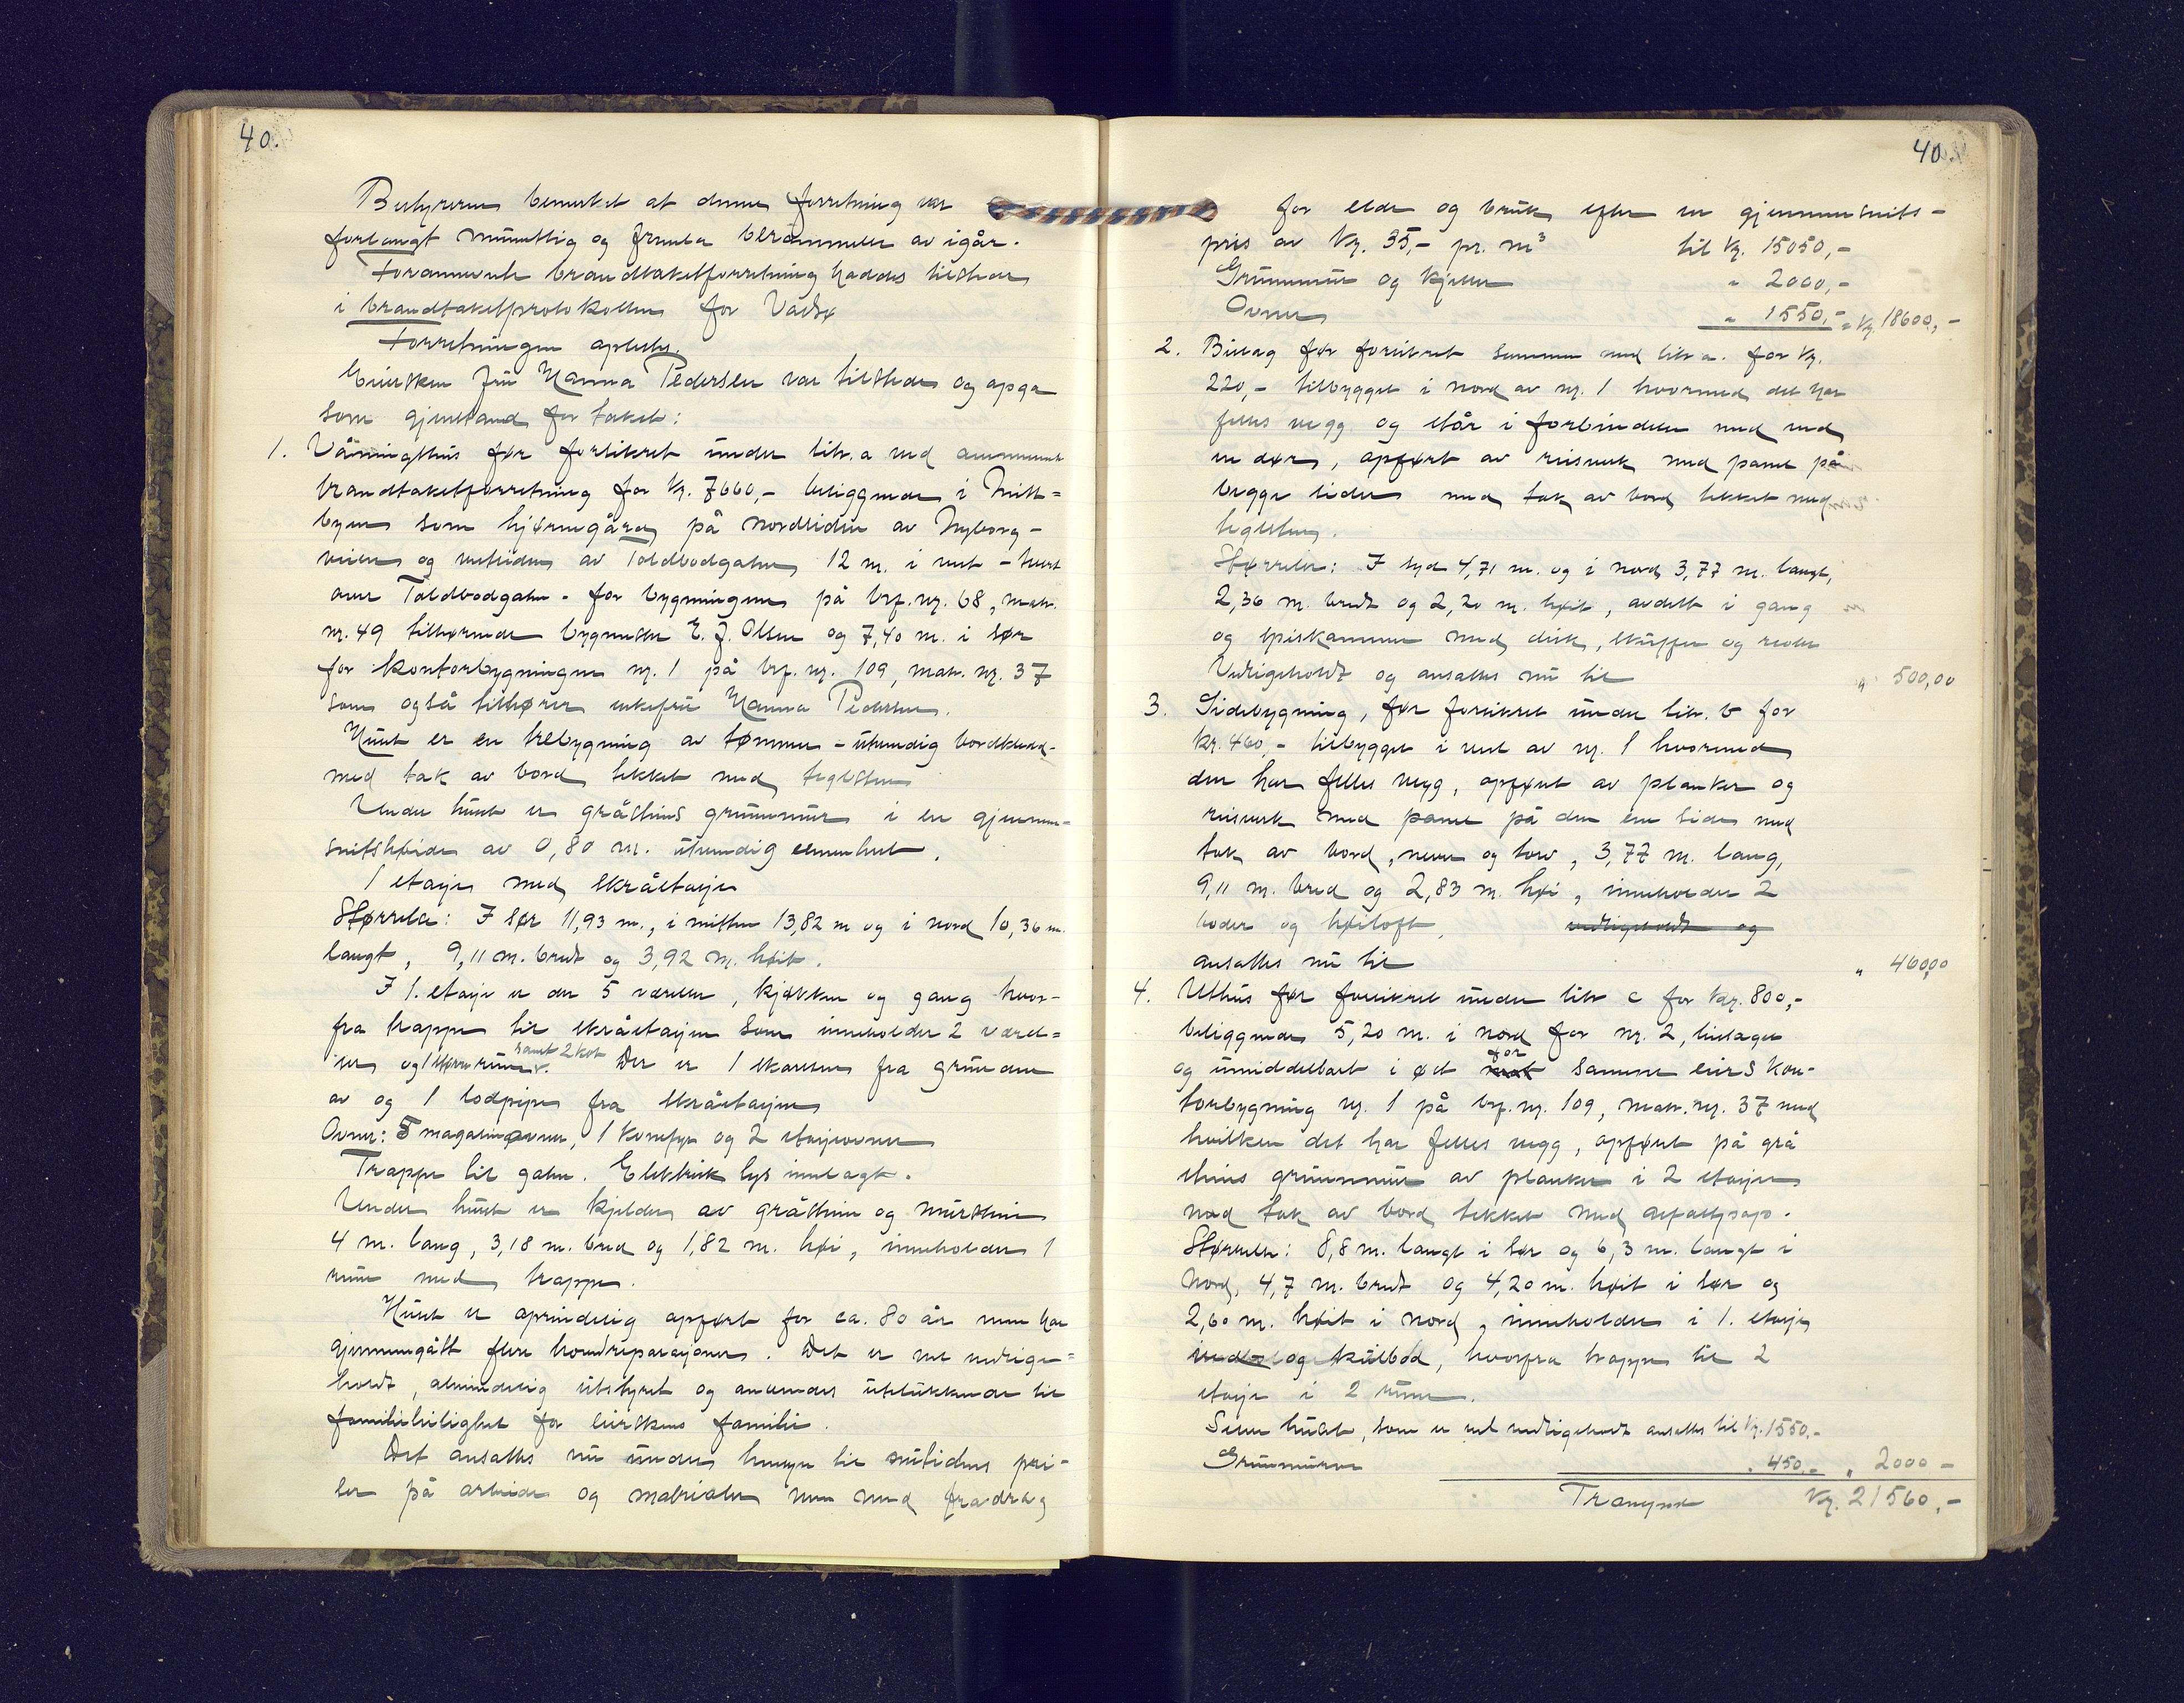 40.
Bestyreren bemerket at denne forretning var
forlangt muntlig og fremla berammelse av igår.
Forannevnte brandtakstforretning haddes tilstede
i brandtakstprotokollen for Vadsø
Forretningen oplestes.
Eiersken fru Hanna Pedersen var tilstede og opga
som gjenstand for takst:
1. Våningshus før forsikret under litr. a ved
brandtakstforretning for kr. 7660,- beliggende i Midt-
byen som hjørnegård på nordsiden av Nyborg-
veien og vestsiden av Toldbodgaten 12 m. i vest - tvert
over Toldbodgaten - for bygningene på brf. nr. 68, matr.
nr. 49 tilhørende bygmester E. J. Olsen og 7,40 m. i sør
for kontorbygningen nr. 1 på brf. nr. 109, matr. nr. 37
som også tilhører enkefru Hanna Pedersen.
Huset er en trebygning av tømmer - utvendig bordkledd -
med tak av bord tekket med teglsten
Under huset er gråstens grunnmur i en gjennem-
snitshøide av 0,80 m. utvendig
1 etasje med skråetasje
Størrelse: I sør 11,93 m., i midten 13,82 m og i nord 10,36 m.
langt, 9,11 m. bredt og 3,92 m. høit.
I 1. etasje er der 5 værelser, kjøkken og gang hvor-
fra trappe til skråetasjen som inneholder 2 værel-
ser og 1 større rum samt 2 kot. Der er 1 skorsten fra grunnen
av og 1 lodpipe fra skråetasjen
Ovner: 5 magasinovner, 1 komfyr og 2 etasjeovner
Trappe til gaten. Elektrisk lys innlagt.
Under huset er kjelder av gråsten og murstein
4 m. lang, 3,18 m. bred og 1,82 m. høi, inneholder 1
rum med trappe.
Huset er oprindelig opført for ca. 80 år men har
gjennemgått flere hovedreparasjoner. Det er vel vedlige-
holdt, almindelig utstyret og anvendes utelukkende til
familieleilighet for eierskens familie.
Det ansattes nu under hensyn til nutidens pri-
ser på arbeide og materialer men med fradrag
40.
for elde og bruk efter en gjennemsnits-
pris av kr. 35,- pr. m³ til kr. 15050,-
Grunnmur og kjeller " 2000,-
Ovner " 1550,- = kr. 18600,-
2. Bislag før forsikret sammen med litr a. for kr.
220,- tilbygget i nord av nr. 1 hvormed det har
felles vegg og står i forbindelse med ved
en dør, opført av reisverk med panel på
begge sider med tak av bord tekket med
teglsten.
Størrelse: I syd 4,71 m. og i nord 3,77 m. langt,
2,36 m. bredt og 2,20 m. høit, avdelt i gang
og spiskammer med disk, skuffer og reoler
Vedligeholdt og ansattes nu til " 500,00
3. Sidebygning, før forsikret under litr. b for
kr. 460,- tilbygget i vest av nr. 1 hvormed
den har felles vegg, opført av planker og
reisverk med panel på den ene side med
tak av bord, never og torv, 3,77 m. lang,
9,11 m. bred og 2,83 m. høi, inneholder 2
boder og høiloft, vedligeholdt og
ansattes nu til " 460,00
4. Uthus før forsikret under litr c for kr. 800,-
beliggende 5,20 m. i nord for nr. 2, bislaget
og umiddelbart i øst for samme eiers kon-
torbygning nr. 1 på brf. nr. 109, matr. nr. 37 med
hvilken det har felles vegg, opført på grå
stens grunnmur av planker i 2 etasjer
med tak av bord tekket med asfaltpapp.
Størrelse: 8,8 m. langt i sør og 6,3 m. langt i
nord, 4,7 m. bredt og 4,20 m. høit i sør og
2,60 m. høit i nord, inneholder i 1. etasje
ved og kulbod, hvorfra trappe til 2
etasje i 2 rum.
Selve huset, som er vel vedligeholdt ansattes til kr. 1550,-
Grunnmuren " 450,- " 2000 -
Transport kr. 21560,-